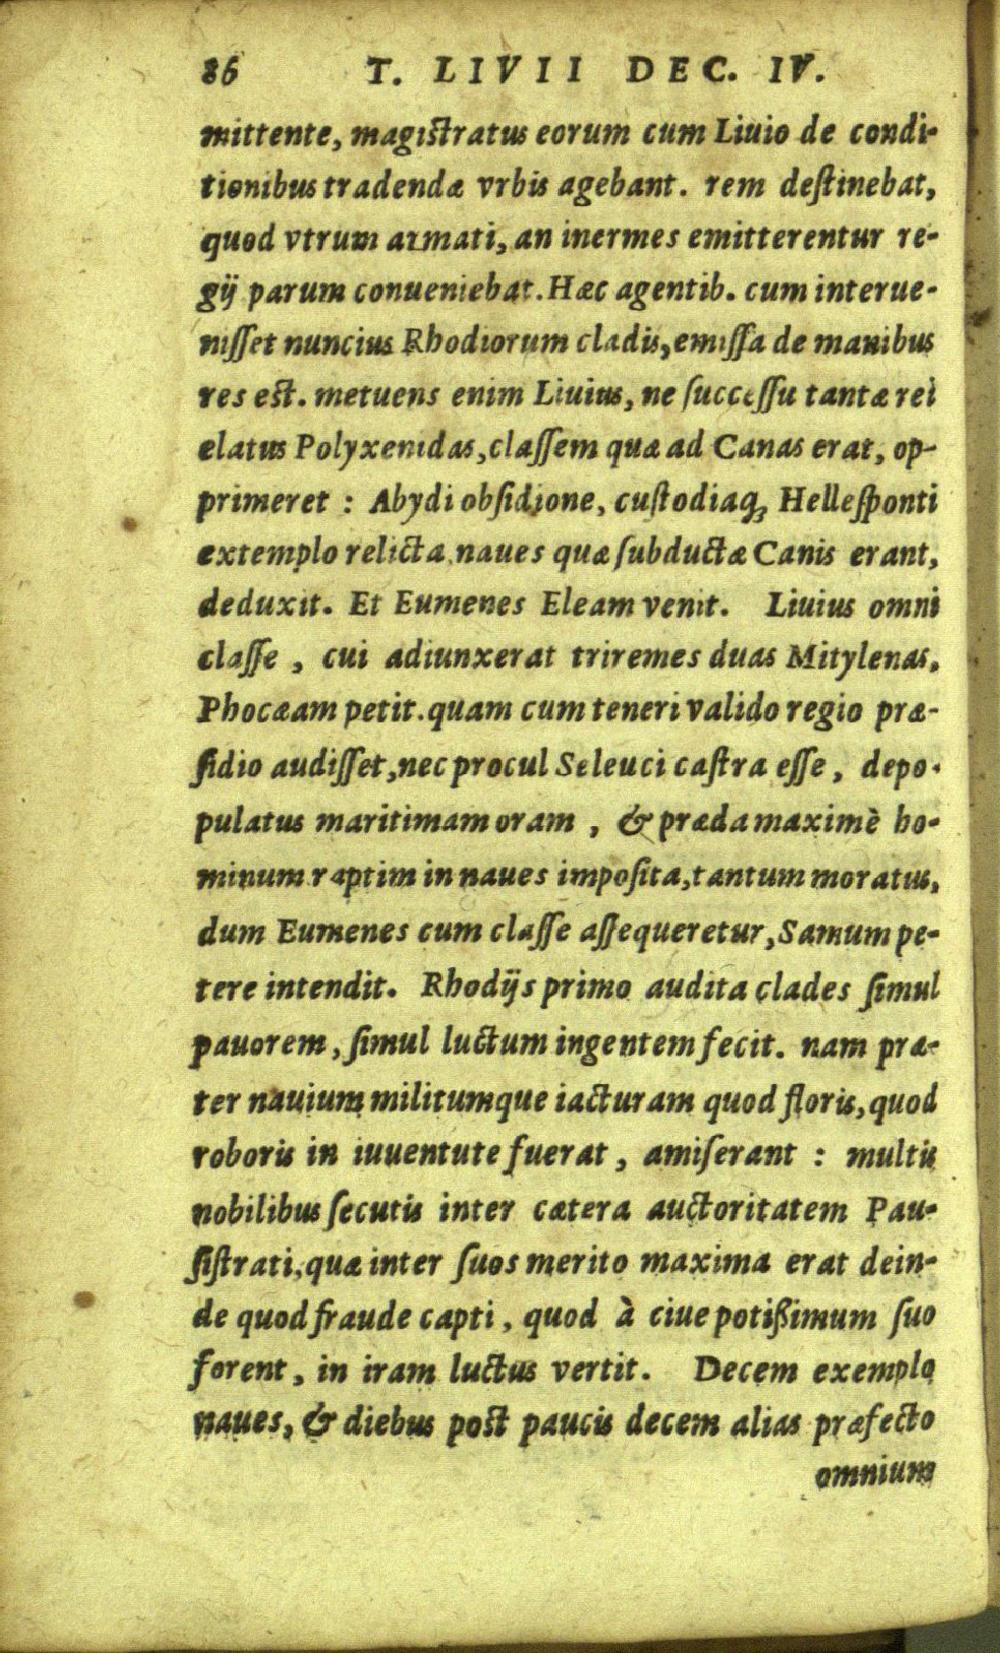 86 T. LIVII DEC. IV.
mittente, magistratus eorum cum Liuio de condi-
tionibus tradendæ vrbis agebant. rem destinebat,
quod vtrum armati, an inermes emitterentur re-
gij parum conueniebat. Hæc agentib. cum interue-
nisset nuncius Rhodiorum cladis, emissa de manibus
res est. metuens enim Liuius, ne successu tantæ rei
elatus Polyxenidas, classem quæ ad Canas erat, op-
primeret : Abydi obsidione, custodiaq; Hellesponti
extemplo relicta, naues quæ subductæ Canis erant,
deduxit. Et Eumenes Eleam venit. Liuius omni
classe , cui adiunxerat triremes duas Mitylenas,
Phocæam petit. quam cum teneri valido regio præ-
sidio audisset, nec procul Seleuci castra esse , depo-
pulatus maritimam oram , & præda maximè ho-
minum raptim in naues imposita, tantum moratus,
dum Eumenes cum classe assequeretur, Samum pe-
tere intendit. Rhodijs primo audita clades simul
pauorem, simul luctum ingentem fecit. nam præ-
ter nauium militumque iacturam quod floris, quod
roboris in iuuentute fuerat , amiserant : multis
nobilibus secutis inter cætera auctoritatem Pau-
sistrati, quæ inter suos merito maxima erat dein-
de quod fraude capti , quod à ciue potißimum suo
forent , in iram luctus vertit. Decem exemplo
naues, & diebus post paucis decem alias præfecto
omnium